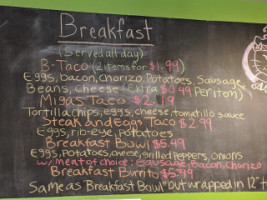 Breakfast
(Served all day)
B-Taco (2 items for $1.99)
Eggs, bacon, chorizo, Potatoes, Sausage,
Beans, cheese (Extra $0.49 Per item)
Migas Taco $2.19
Tortilla chips, eggs, cheese, tomatillo sauce
Steak and Eggs Taco $2.99
Eggs, rib-eye, potatoes
Breakfast Bowl $5.49
Eggs, Potatoes, cheese, Grilled Peppers, onions
w/ meat of choice: Sausage, Bacon, Chorizo
Breakfast Burrito $5.49
Same as Breakfast Bowl but wrapped in 12"